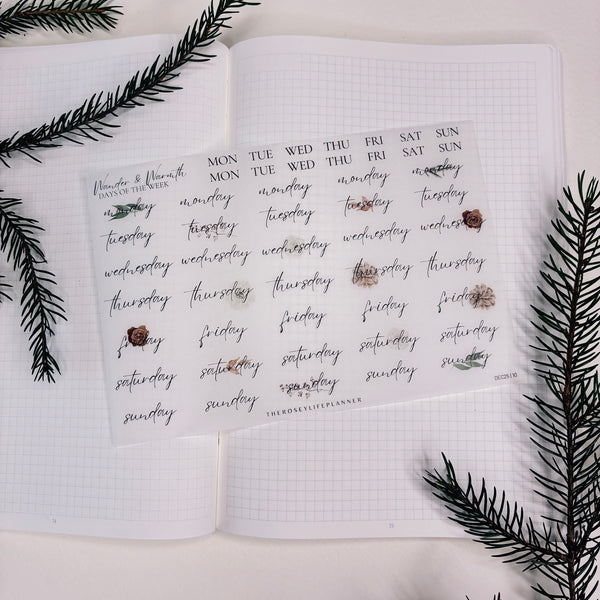 Wander & Warmth
DAYS OF THE WEEK
MON TUE WED THU FRI SAT SUN
MON TUE WED THU FRI SAT SUN
monday monday monday monday monday
tuesday tuesday tuesday tuesday tuesday
wednesday wednesday wednesday wednesday wednesday
thursday thursday thursday thursday thursday
friday friday friday friday friday
saturday saturday saturday saturday saturday
sunday sunday sunday sunday sunday
THEROSEYLIFEPLANNER